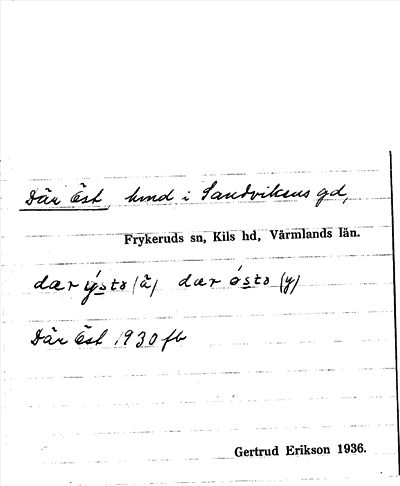 Där Öst, hmd i Sandvikens gd,
Frykeruds sn, Kils hd, Värmlands län.
dær ýsto (ä) dær ósto (y)
Där Öst 1930 fb
Gertrud Erikson 1936.